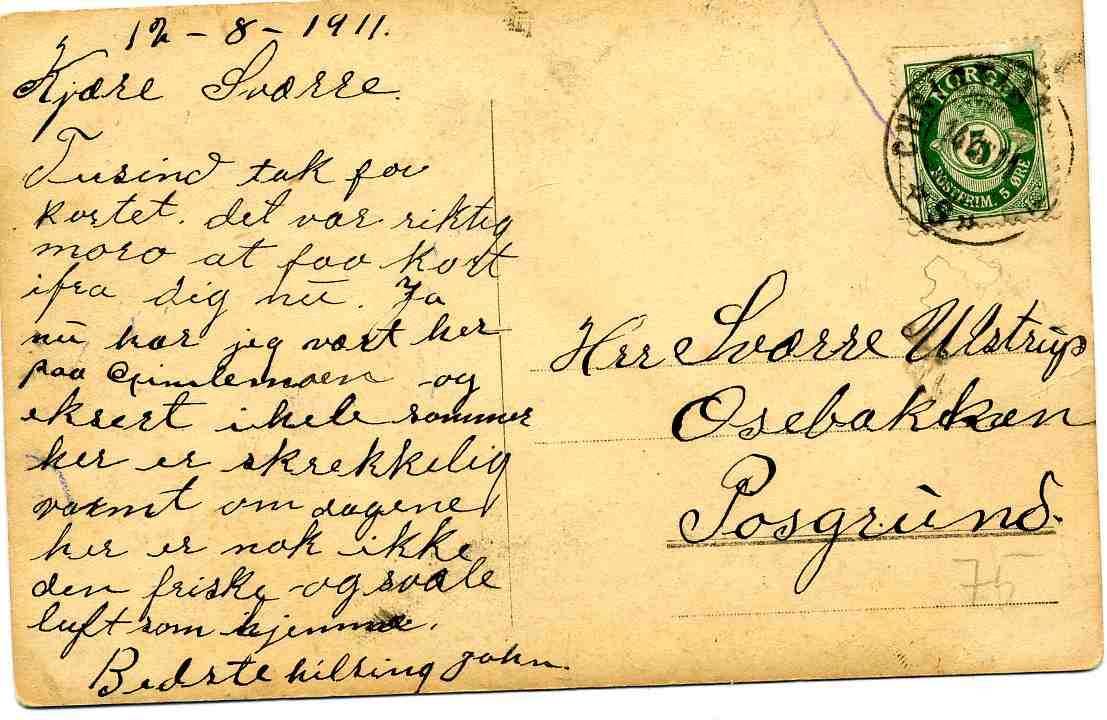 12 - 8 - 1911.
Kjære Sværre.
Tusind tak for
kortet. det var riktig
moro at faa kort
ifra dig nu. Ja
nu har jeg vært her
paa Gimlemoen og
eksert i hele sommer
her er skrekkelig
varmt om dagene
her er nok ikke
den friske og svale
luft som hjemme.
Bedste hilsing John.
NORGE
5
POSTFRIM. 5 ØRE
Hrr Sværre Ulstrup
Osebakken
Posgrund.
75